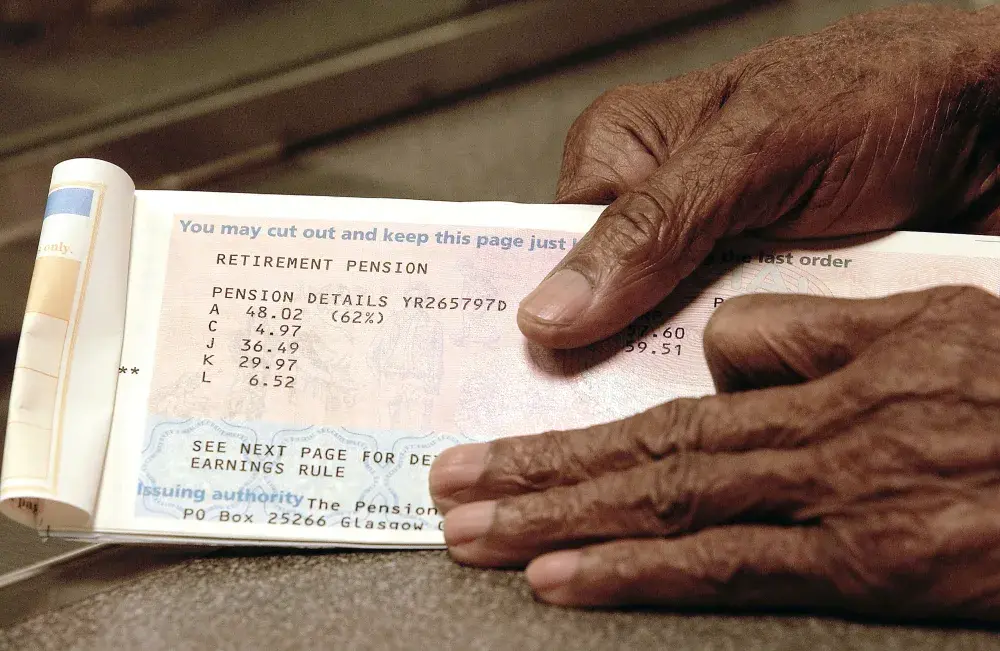 only.
You may cut out and keep this page just the last order
RETIREMENT PENSION
PENSION DETAILS YR265797D
A 48.02 (62%)
C 4.97
J 36.49
K 29.97
L 6.52
7.60
59.51
**
SEE NEXT PAGE FOR
EARNINGS RULE
Issuing authority The Pension
PO Box 25266 Glasgow